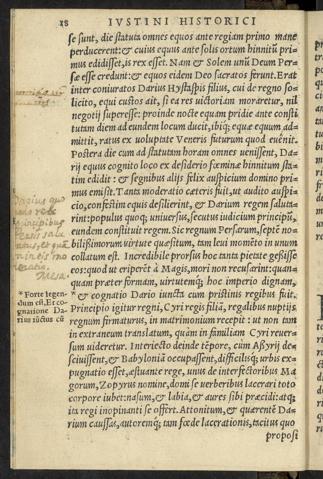 18 IVSTINI HISTORICI
se sunt, die statuta omnes equos ante regiam primo mane
perducerent: & cuius equus ante solis ortum binnitũ pri-
mus edidisset, is rex esset. Nam & Solem unũ Deum Per-
sæ esse credunt: & equos eidem Deo sacratos ferunt. Erat
inter coniuratos Darius Hystaspis filius, cui de regno so-
licito, equi custos ait, si ea res uictoriam moraretur, nil
negotij superesse: proinde nocte equam pridie ante consti
tutam diem ad eundem locum ducit, ibiq; equæ equum ad-
mittit, ratus ex uoluptate Veneris futurum quod euenit.
Postera die cum ad statutam horam omnes uenissent, Da-
rij equus cognito loco ex desiderio fœminæ binnitum sta-
tim edidit: & segnibus alijs felix auspicium domino pri-
mus emisit. Tanta moderatio cæteris fuit, ut audito auspi-
cio, confestim equis desilierint, & Darium regem saluta-
rint: populus quoq; uniuersus, secutus iudicium principũ,
eundem constituit regem. Sic regnum Persarum, septẽ no-
bilißimorum uirtute quæsitum, tam leui momẽto in unum
collatum est. Incredibile prorsus hoc tanta pietate geßisse
eos: quod ut eriperẽt à Magis, mori non recusarint: quan-
quam præter formam, uirtutemq; hoc imperio dignam,
* & cognatio Dario iuncta cum pristinis regibus fuit.
Principio igitur regni, Cyri regis filiã, regalibus nuptijs
regnum firmaturus, in matrimonium recepit: ut non tam
in extraneum translatum, quàm in familiam Cyri reuer-
sum uideretur. Interiecto deinde tẽpore, cùm Aßyrij de-
sciuissent, & Babyloniã occupassent, difficilisq; urbis ex-
pugnatio esset, æstuante rege, unus de interfectoribus Ma
gorum, Zopyrus nomine, domi se uerberibus lacerari toto
corpore iubet: nasum, & labia, & aures sibi præcidi: atq;
ita regi inopinanti se offert. Attonitum, & quærentẽ Da-
rium caussas, autoremq; tam fœdæ lacerationis, tacitus quo
proposi
* Forte legen-
dum est, Et co-
gnatione Da-
rius iũctus cũ